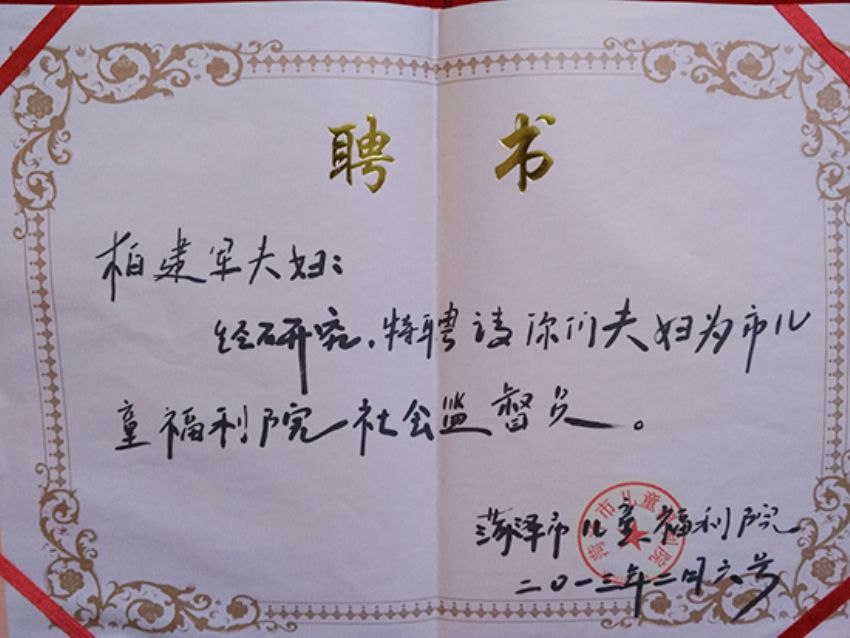 聘书
柏建军夫妇:
经研究,特聘请你们夫妇为市儿
童福利院社会监督员。
菏泽市儿童福利院
二〇一三年二月六号
菏泽市儿童福利院